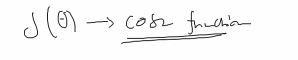 J(θ) → cost function